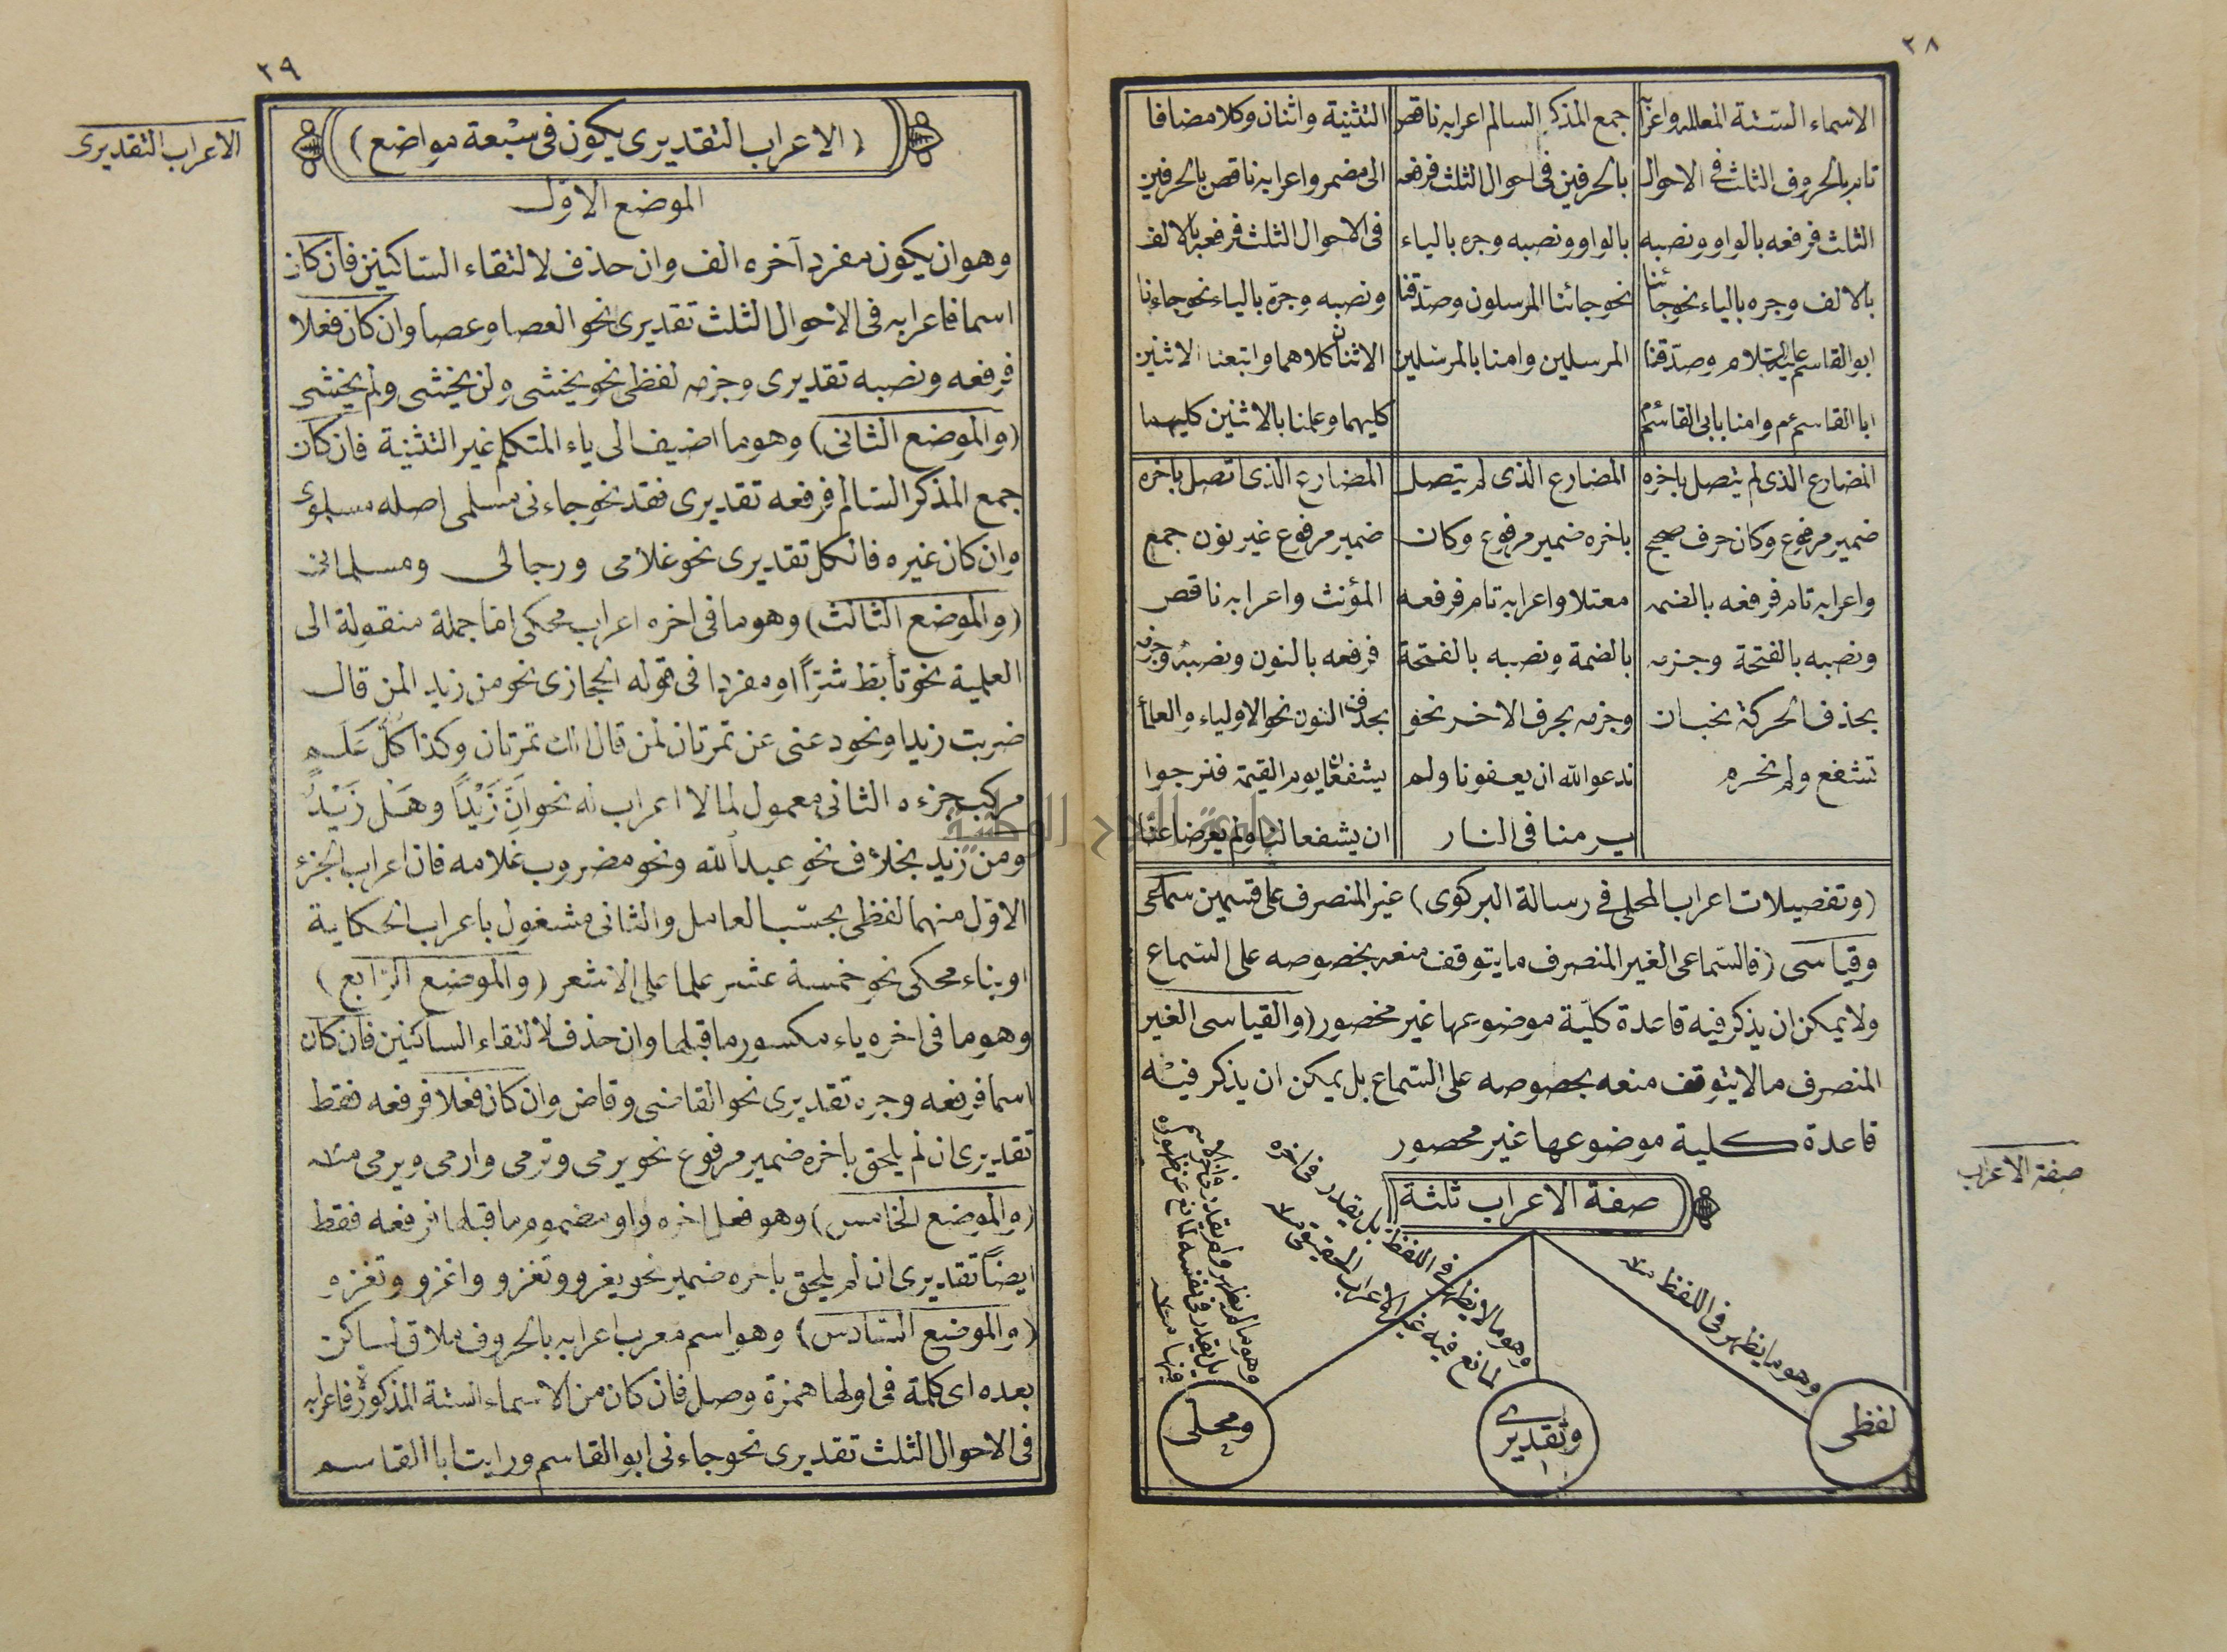 ٢٨
الاسماء الستة المعللة واعرابه
تام بالحروف الثلث فى الاحوال
الثلث فرفعه بالواو ونصبه
بالالف وجره بالياء نحو جائنا
ابو القاسم عليه السلام وصدقنا
ابا القاسم عم وامنا بابى القاسم
جمع المذكر السالم اعرابه ناقص
بالحرفين فى احوال الثلث فرفعه
بالواو ونصبه وجره بالياء
نحو جائنا المرسلون وصدقنا
المرسلين وامنا بالمرسلين
التثنية واثنان وكلا مضافا
الى مضمر واعرابه ناقص بالحرفين
فى الاحوال الثلث فرفعه بالالف
ونصبه وجره بالياء نحو جاءنا
الاثنان كلاهما واتبعنا الاثنين
كليهما وعلمنا بالاثنين كليهما
المضارع الذى لم يتصل باخره
ضمير مرفوع وكان حرف صحيح
واعرابه تام فرفعه بالضمه
ونصبه بالفتحة وجزمه
بحذف الحركة نحب ان
تشفع ولم نحرم
المضارع الذى لم يتصل
باخره ضمير مرفوع وكان
معتلا واعرابه تام فرفعه
بالضمة ونصبه بالفتحة
وجزمه بحرف الاخر نحو
ندعو الله ان يعفونا ولم
يرمنا فى النار
المضارع الذى اتصل باخره
ضمير مرفوع غير نون جمع
المؤنث واعرابه ناقص
فرفعه بالنون ونصبه وجزمه
بحذف النون نحو الاولياء والعلماء
يشفعان يوم القيمة فنرجوا
ان يشفعا لنا ولم يعرضا عنا
(وتفصيلات اعراب المحلى فى رسالة البركوى) غير المنصرف على قسمين سماعى
وقياسى (فالسماعى الغير المنصرف ما يتوقف منعه بخصوصه على السماع
ولا يمكن ان يذكر فيه قاعدة كلية موضوعها غير محصور (والقياسى الغير
المنصرف ما لا يتوقف منعه بخصوصه على السماع بل يمكن ان يذكر فيه
قاعدة كلية موضوعها غير محصور
صفة الاعراب
صفة الاعراب ثلثة
وهو ما يظهر فى اللفظ منه
وهو ما لا يظهر فى اللفظ بل يقدر فى اخره
لمانع فيه غير الاعراب الحقيقى منه
وهو ما لم يظهر ولم يقدر فى اخره
بل يقدر فى نفسه لمانع عن ظهوره
فيها منه
لفظى
وتقديرى
١
ومحلى
٢
٢٩
الاعراب التقديرى
(الاعراب التقديرى يكون فى سبعة مواضع)
الموضع الاول
وهو ان يكون مفرد آخره الف وان حذف لالتقاء الساكنين فان كان
اسما فاعرابه فى الاحوال الثلث تقديرى نحو العصا وعصا وان كان فعلا
فرفعه ونصبه تقديرى وجزمه لفظى نحو يخشى ولن يخشى ولم يخش
(والموضع الثانى) وهو ما اضيف الى ياء المتكلم غير التثنية فان كان
جمع المذكر السالم فرفعه تقديرى فقد نحو جاءنى مسلمى اصله مسلموى
وان كان غيره فالكل تقديرى نحو غلامى ورجالى ومسلماتى
(والموضع الثالث) وهو ما فى اخره اعراب محكى اما جملة منقولة الى
العلمية نحو تأبط شرًا او مفردا فى قوله الحجازى نحو من زيدا لمن قال
ضربت زيدا ونحو دعنى عن تمرتان لمن قال لك تمرتان وكذا كل علم
مركب جزءه الثانى معمول لما لا اعراب له نحو انَّ زَيْدًا وهَلْ زَيْدٌ
ومن زيد بخلاف نحو عبد الله ونحو مضروب غلامه فان اعراب الجزء
الاول منهما لفظى بحسب العامل والثانى مشغول باعراب الحكاية
او بناء محكى نحو خمسة عشر علما على الاشعر (والموضع الرابع)
وهو ما فى اخره ياء مكسور ما قبلها وان حذف لالتقاء الساكنين فان كان
اسما فرفعه وجره تقديرى نحو القاضى وقاض وان كان فعلا فرفعه فقط
تقديرى ان لم يلحق باخره ضمير مرفوع نحو يرمى وترمى وارمى ونرمى منه
(والموضع الخامس) وهو فعل اخره واو مضموم ما قبلها فرفعه فقط
ايضاً تقديرى ان لم يلحق باخره ضمير نحو يغزو وتغزو واغزو ونغزو
(والموضع السادس) وهو اسم معرب اعرابه بالحروف ملاق لساكن
بعده اى كلمة فى اولها همزة وصل فان كان من الاسماء الستة المذكورة فاعرابه
فى الاحوال الثلث تقديرى نحو جاءنى ابو القاسم ورايت ابا القاسم